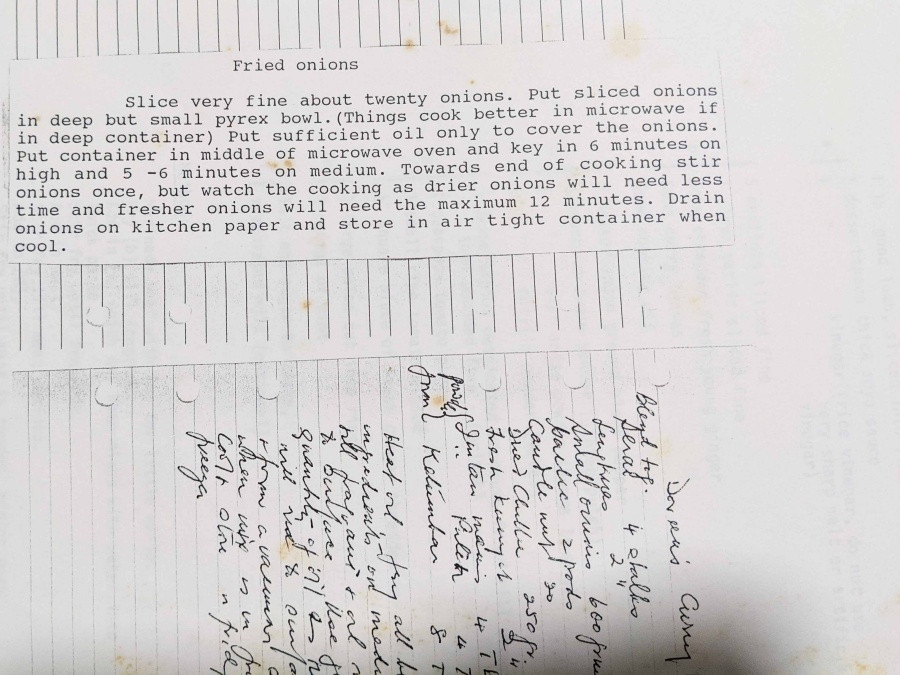 Fried onions
Slice very fine about twenty onions. Put sliced onions
in deep but small pyrex bowl.(Things cook better in microwave if
in deep container) Put sufficient oil only to cover the onions.
Put container in middle of microwave oven and key in 6 minutes on
high and 5 -6 minutes on medium. Towards end of cooking stir
onions once, but watch the cooking as drier onions will need less
time and fresher onions will need the maximum 12 minutes. Drain
onions on kitchen paper and store in air tight container when
cool.
Curry
Blend tog.
Serai 4 stalks
2"
Small onions 600
2 pods
Candle nut 20
250
Fresh kunyit
4
powder
Ketumbar 8
Heat oil fry all
ingredients on
till fragrant & oil
to surface. Use
quantity of oil so
will rise to
form a vacuum
when mix is in
cool store in
freezer